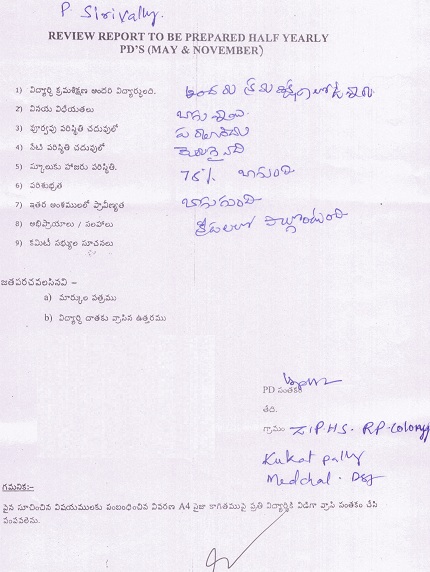 P. Sirivally.
REVIEW REPORT TO BE PREPARED HALF YEARLY
PD'S (MAY & NOVEMBER)
1) విద్యార్థి క్రమశిక్షణ అందరి విద్యార్థులంది.
2) వినయ విధేయతలు బాగున్నాయి.
3) పూర్వపు పరిస్థితి చదువులో
4) నేటి పరిస్థితి చదువులో
5) స్కూలుకు హాజరు పరిస్థితి. 76% బాగుంది
6) పరిశుభ్రత
7) ఇతర అంశములలో ప్రావీణ్యత బాగుంది
8) అభిప్రాయాలు / సలహాలు
9) కమిటీ సభ్యుల సూచనలు
జతపరచవలసినవి –
a) మార్కుల పత్రము
b) విద్యార్థి దాతకు వ్రాసిన ఉత్తరము
PD సంతకం
తేది.
గ్రామం Z.P.H.S. R.P. Colony
Kukat pally
Medchal. Dst
గమనిక:–
పైన సూచించిన విషయములకు సంబంధించిన వివరణ A4 సైజు కాగితముపై ప్రతి విద్యార్థికి విడిగా వ్రాసి సంతకం చేసి
పంపవలెను.